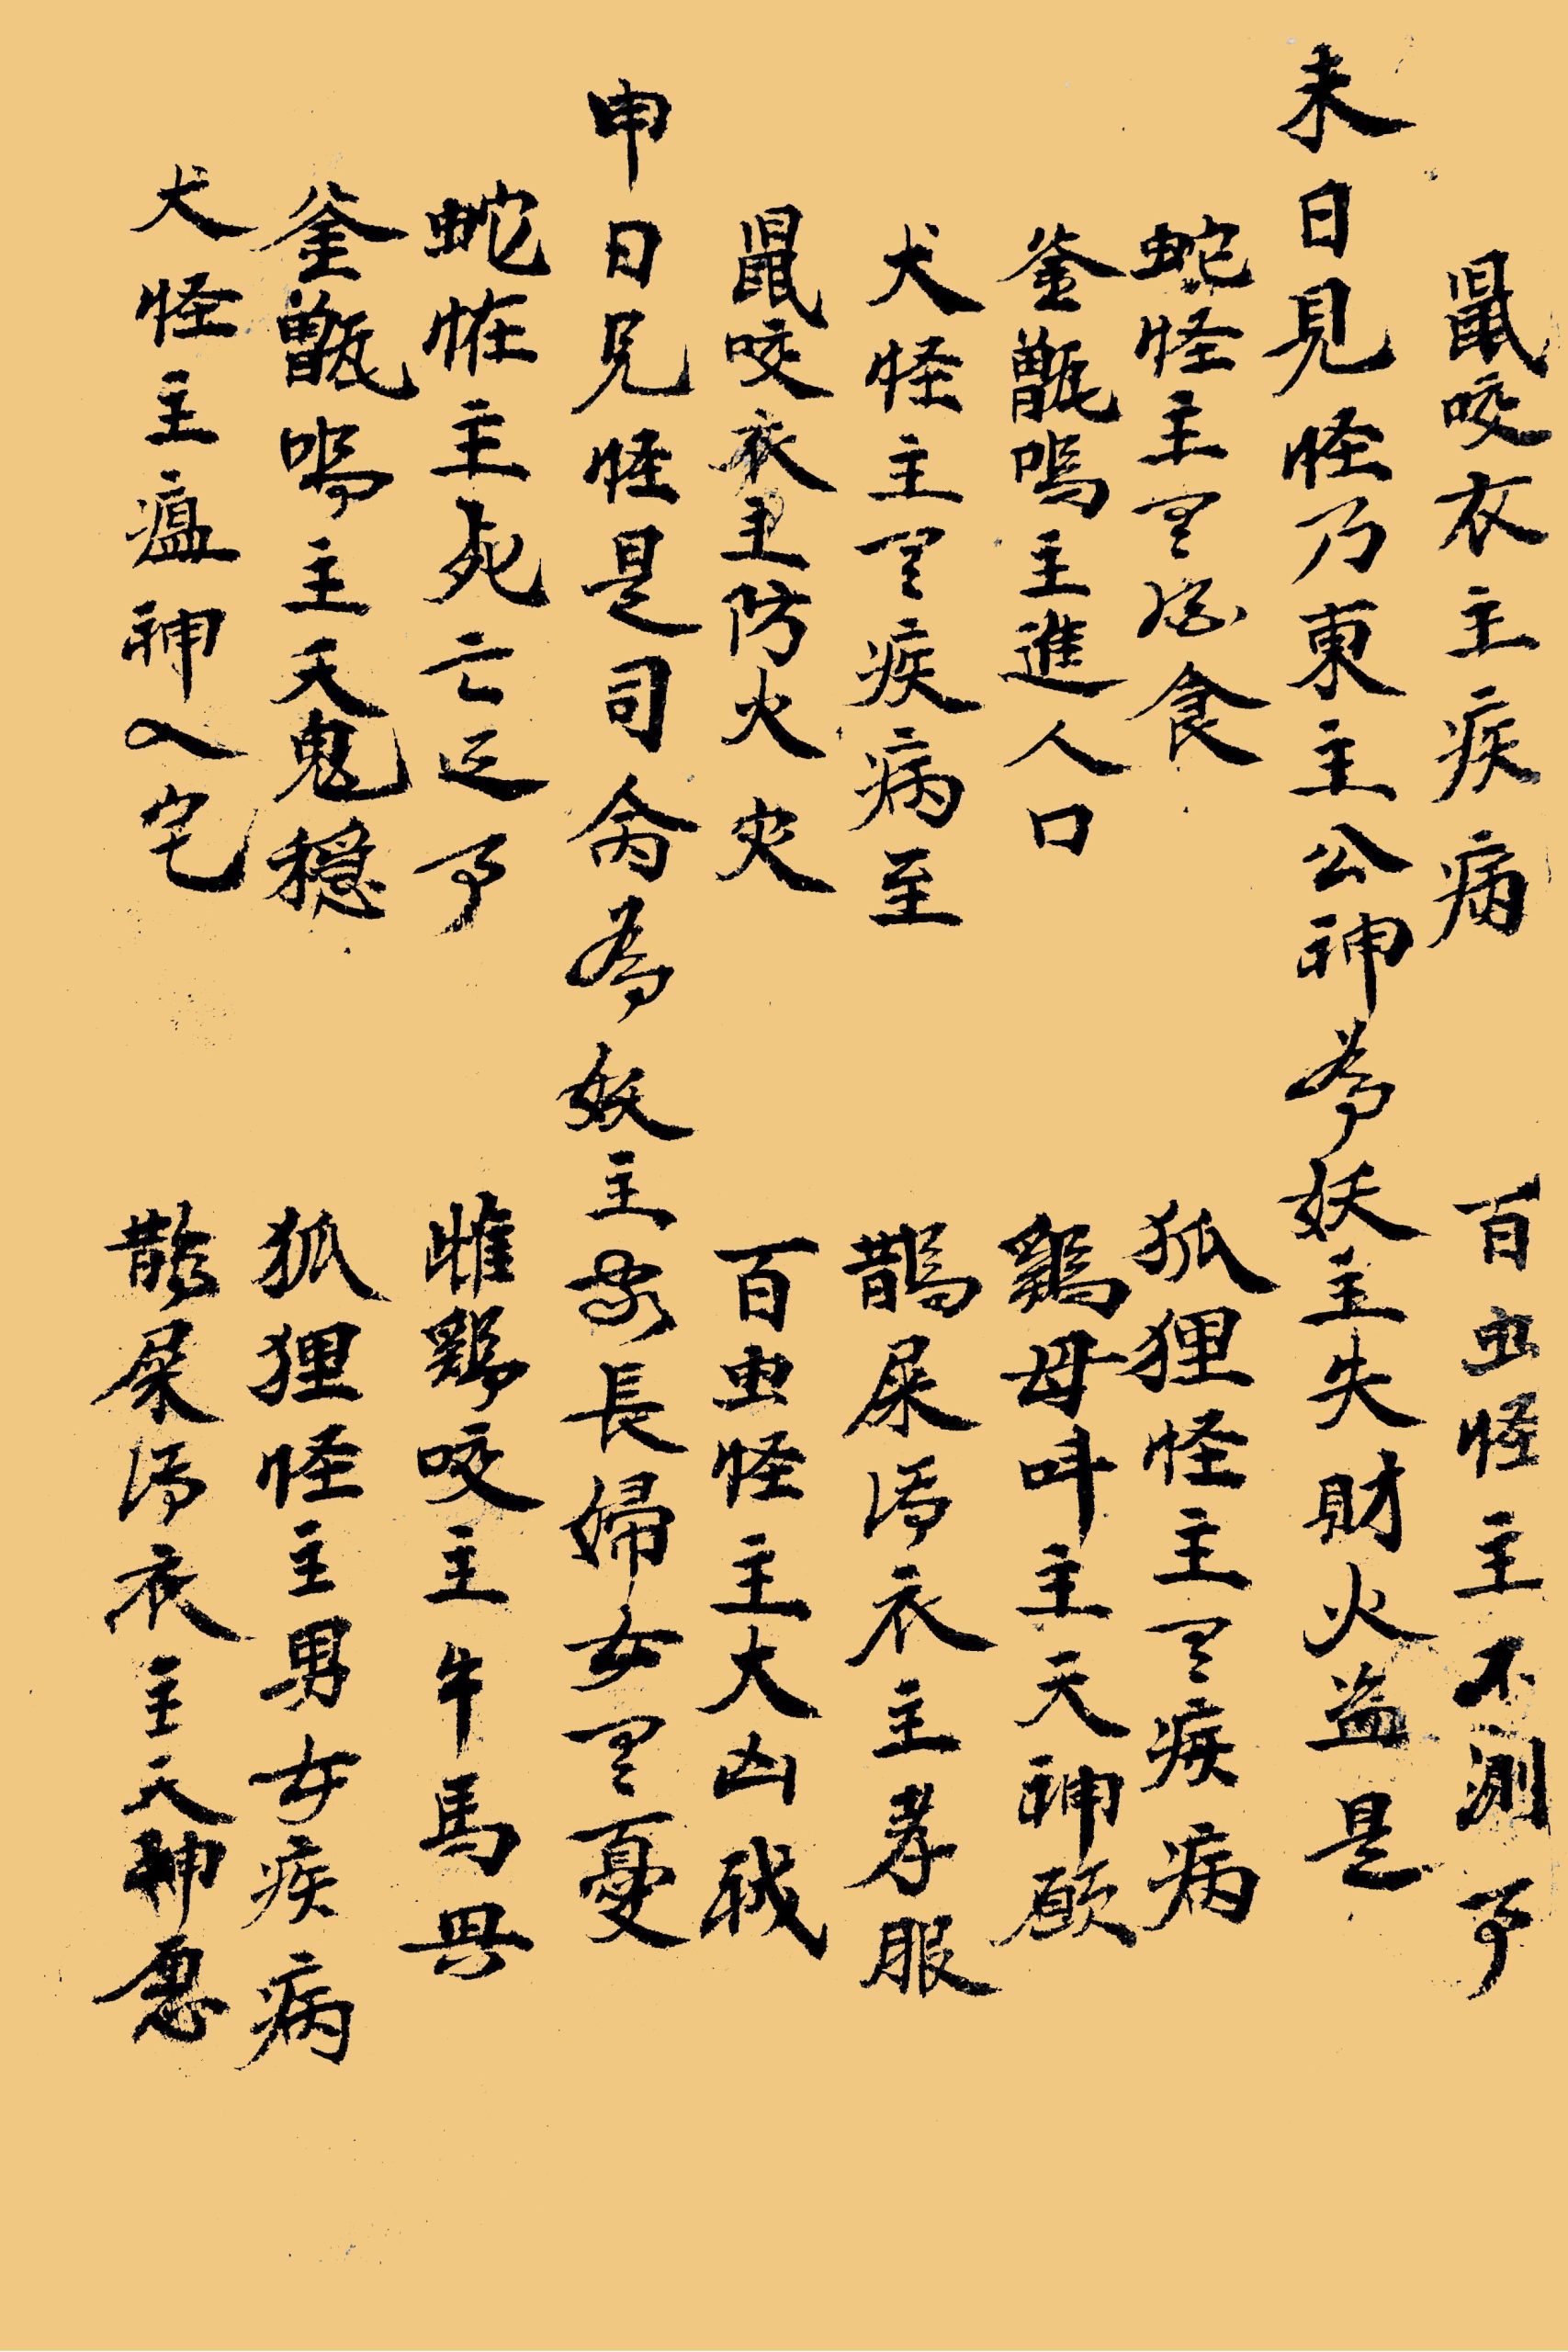 鼠咬衣主疾病　百虫怪主不測事
未日見怪乃東主公神為妖主失財火盗是
蛇怪主有酒食　狐狸怪主有疾病
釜甑鳴主進人口　鷄母叫主天神願
犬怪主有疾病至　鵲屎污衣主孝服
鼠咬衣主防火灾　百虫怪主大凶
申日見怪是司命為妖主家長婦女有憂
蛇怪主死亡之事　雌鷄咬主牛馬
釜甑鳴主天鬼穏　狐狸怪主男女疾病
犬怪主瘟神入宅　鵲屎污衣主天神